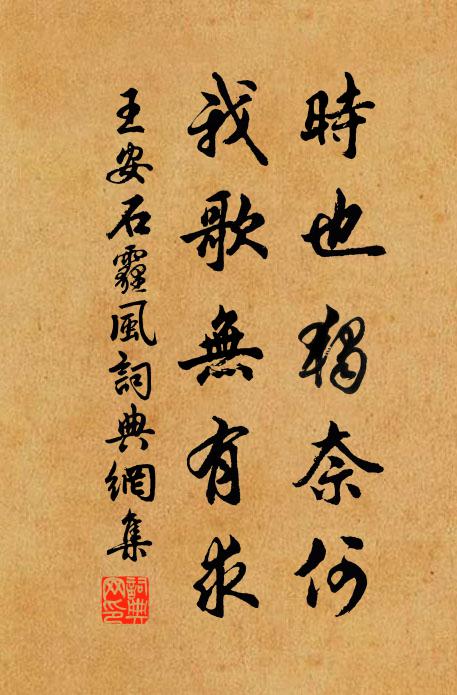 時也獨奈何
我歌無有求
王安石霾風詞典網集
詞典網印